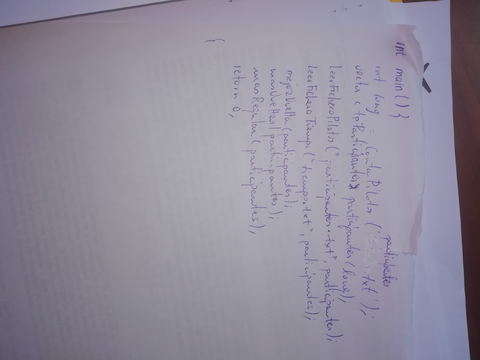 int main() {
int long = ContaPilots("participantes.txt");
vector<tpParticipante> participantes(long);
LeerFicheroPilots("participantes.txt", participantes);
LeerFicheroTiempo("tiempos.txt", participantes);
mejorVuelta(participantes);
masVueltas(participantes);
masRegular(participantes);
return 0;
}